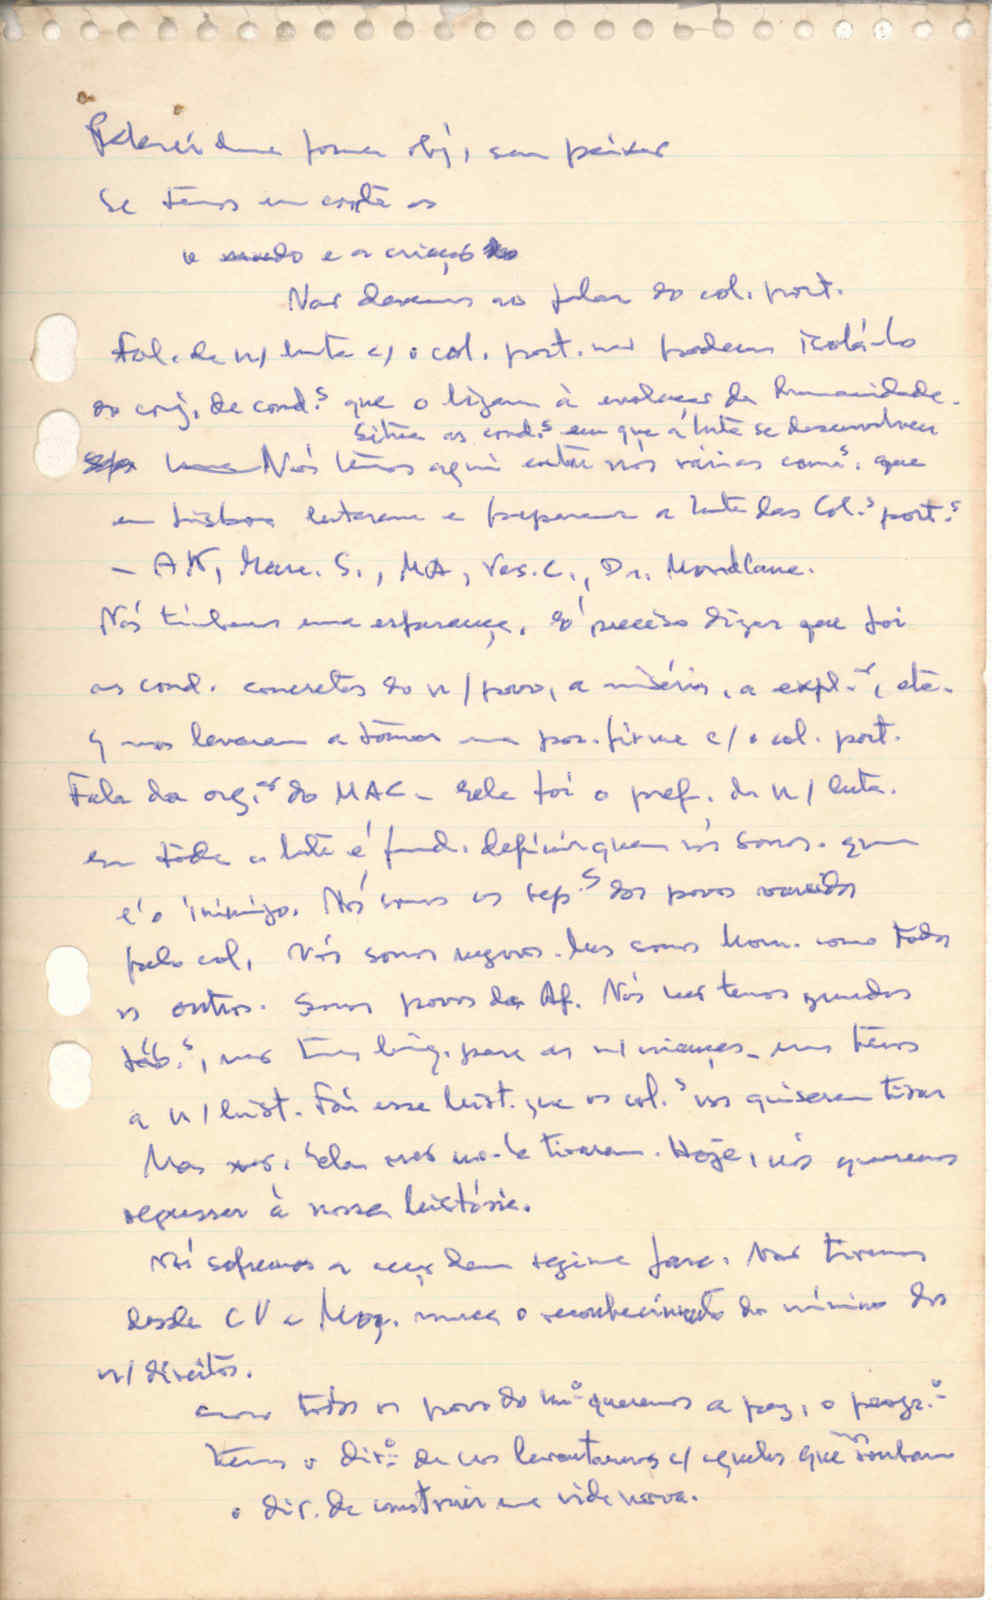 duma forma obj, sem
Se temos em conta os
o mundo e a criação
Nao devemos ao falar do col. port.
Fal. da n/ luta c/ o col. port. nao podemos isolá-lo
do conj. de cond.s que o ligam à evolução da humanidade.
Situa as cond.s em que a luta se desenvolveu
Nós temos aqui entre nós vários cams. que
em Lisboa lutaram e prepararam a luta das Col.s port.s
- AK, Marc. S., MA, Vas. C., Dr. Mondlane.
Nós tinhamos uma esperança. É preciso dizer que foi
as cond. concretas do n/ povo, a miséria, a expl.ão, etc.
q nos levaram a tomar uma pos. firme c/ o col. port.
Fala da org.ão do MAC - Ele foi o pref. da n/ luta.
em toda a luta é fund. definir quem nós somos. quem
é o inimigo. Nós somos os rep.s dos povos
pelo col. Nós somos negros. Mas somos Hom. como todos
os outros. Somos povos da Af. Nós nao temos grandes
fáb.s, nao temos para as n/ crianças - mas temos
a n/ hist. Foi essa hist. que os col.s nos quiseram tirar
Mas nao no-la tiraram. Hoje, nós queremos
regressar à nossa história.
Nós sofremos a acção dum regime fasc. Nao tivemos
desde CV a Moç. nunca o reconhecimento do mínimo dos
n/ direitos.
como todos os povos do mº queremos a paz, o progr.º
Temos o dir.º de nos levantarmos c/ aqueles que nos roubam
o dir. de construir uma vida nova.